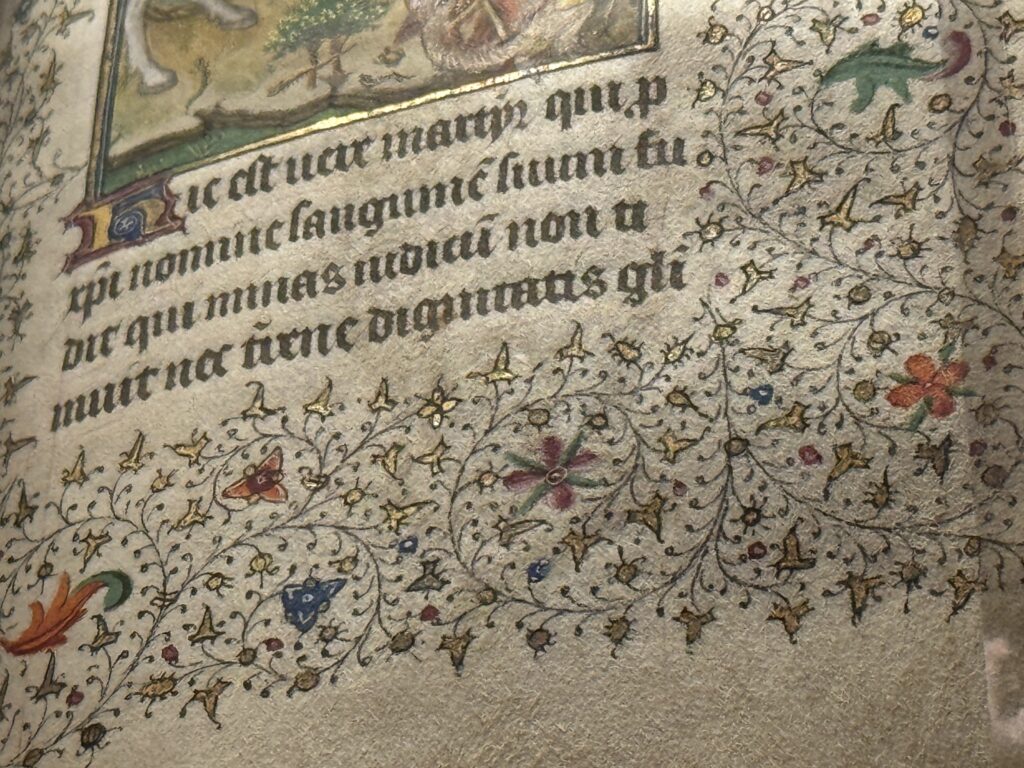 Hic est uere martyr qui ꝓ
xp̄i nomine sanguinē suum fu
dit qui minas iudicū non ti
muit nec t̄rene dignitatis glī